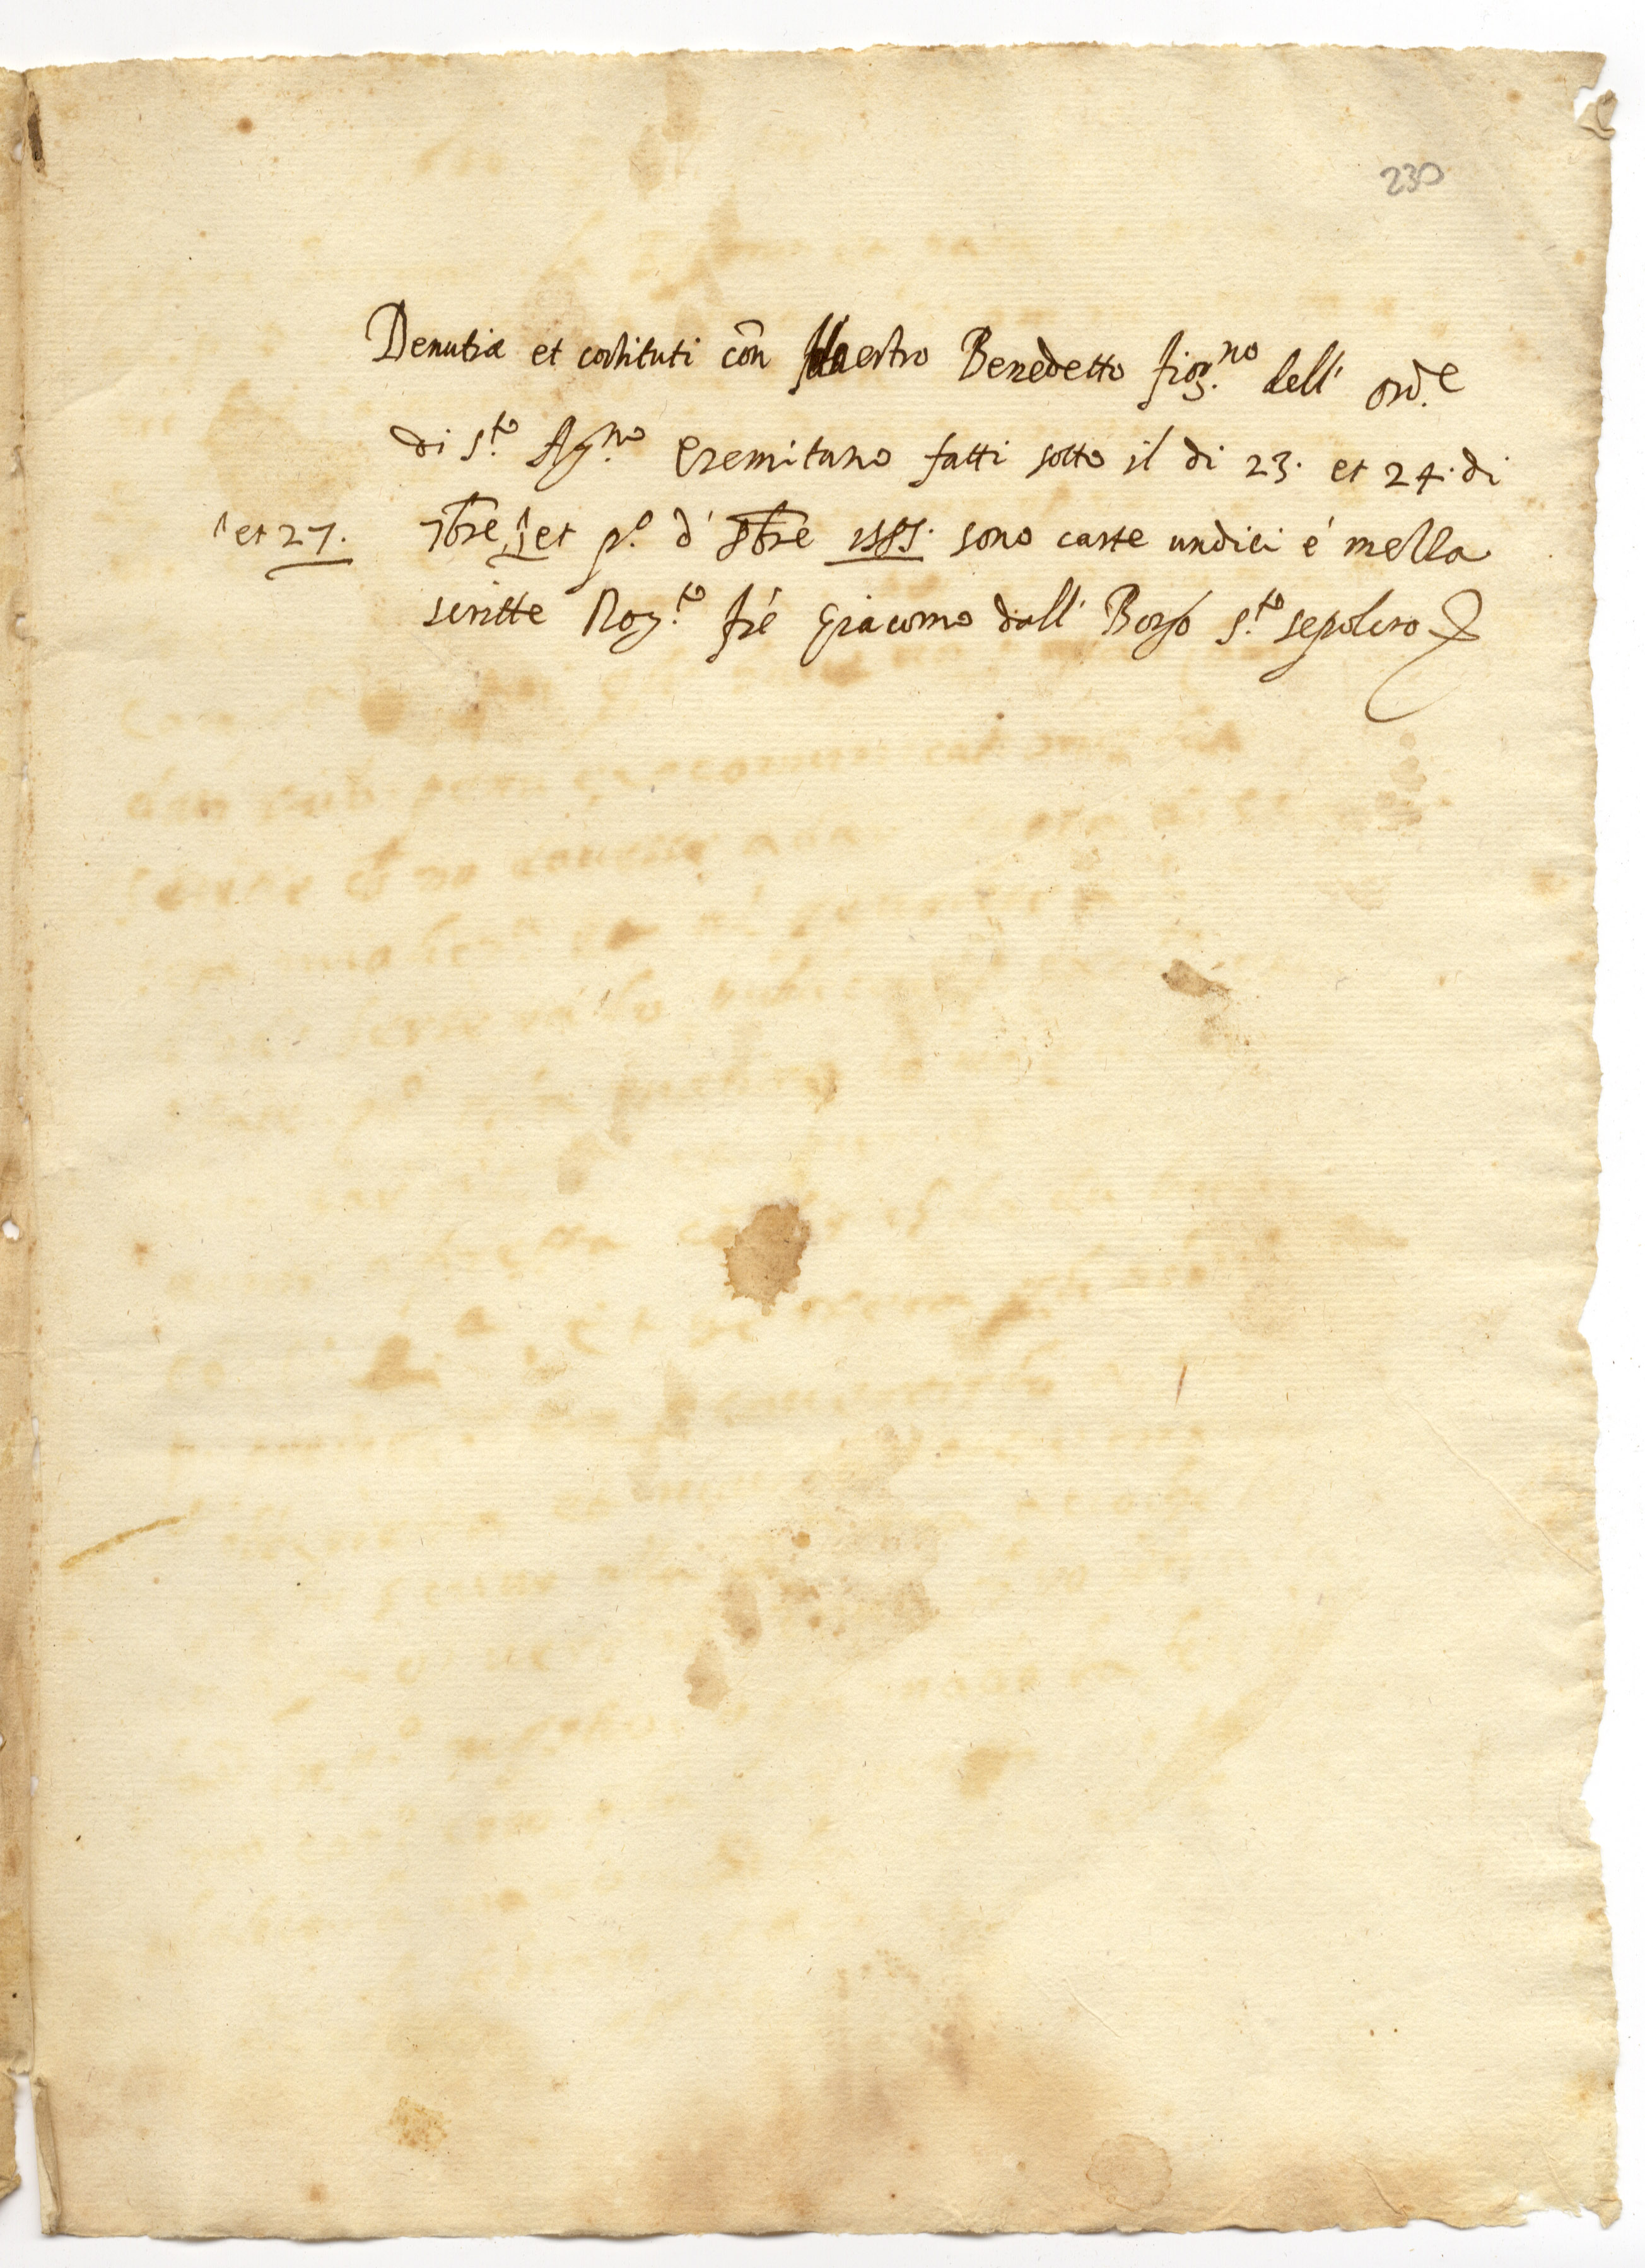 230
Denutia et costituti cõn Maestro Benedetto fior.no dell' ord.e
di s.to Ag.no Eremitano fatti sotto il di 23. et 24. di
et 27.
7bre et p.o d' 8bre 1585. sono carte undici é mella
scritte Rog.to frè Giacomo dall' Borgo s.to sepolcro